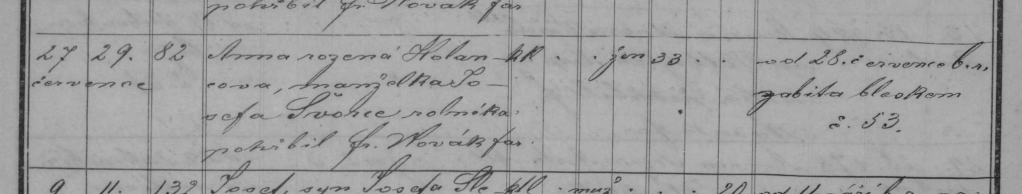 pohřbil fr. Novák far.
27 29. 82 Anna rozená Holan- ktl. žen 33 od 28. července b. r.
července cova, manželka Jo- zabita bleskem
sefa Švorce rolníka. č. 53.
pohřbil fr. Novák far.
9 11. 132 Josef, syn Josefa ktl. muž 20